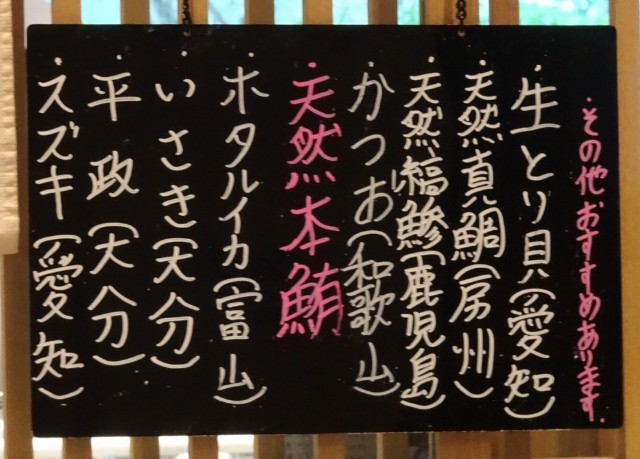 ・その他おすすめあります。
・生とり貝(愛知)
・天然真鯛(房州)
・天然縞鯵(鹿児島)
・かつお(和歌山)
・天然本鮪
・ホタルイカ(富山)
・いさき(大分)
・平政(大分)
・スズキ(愛知)